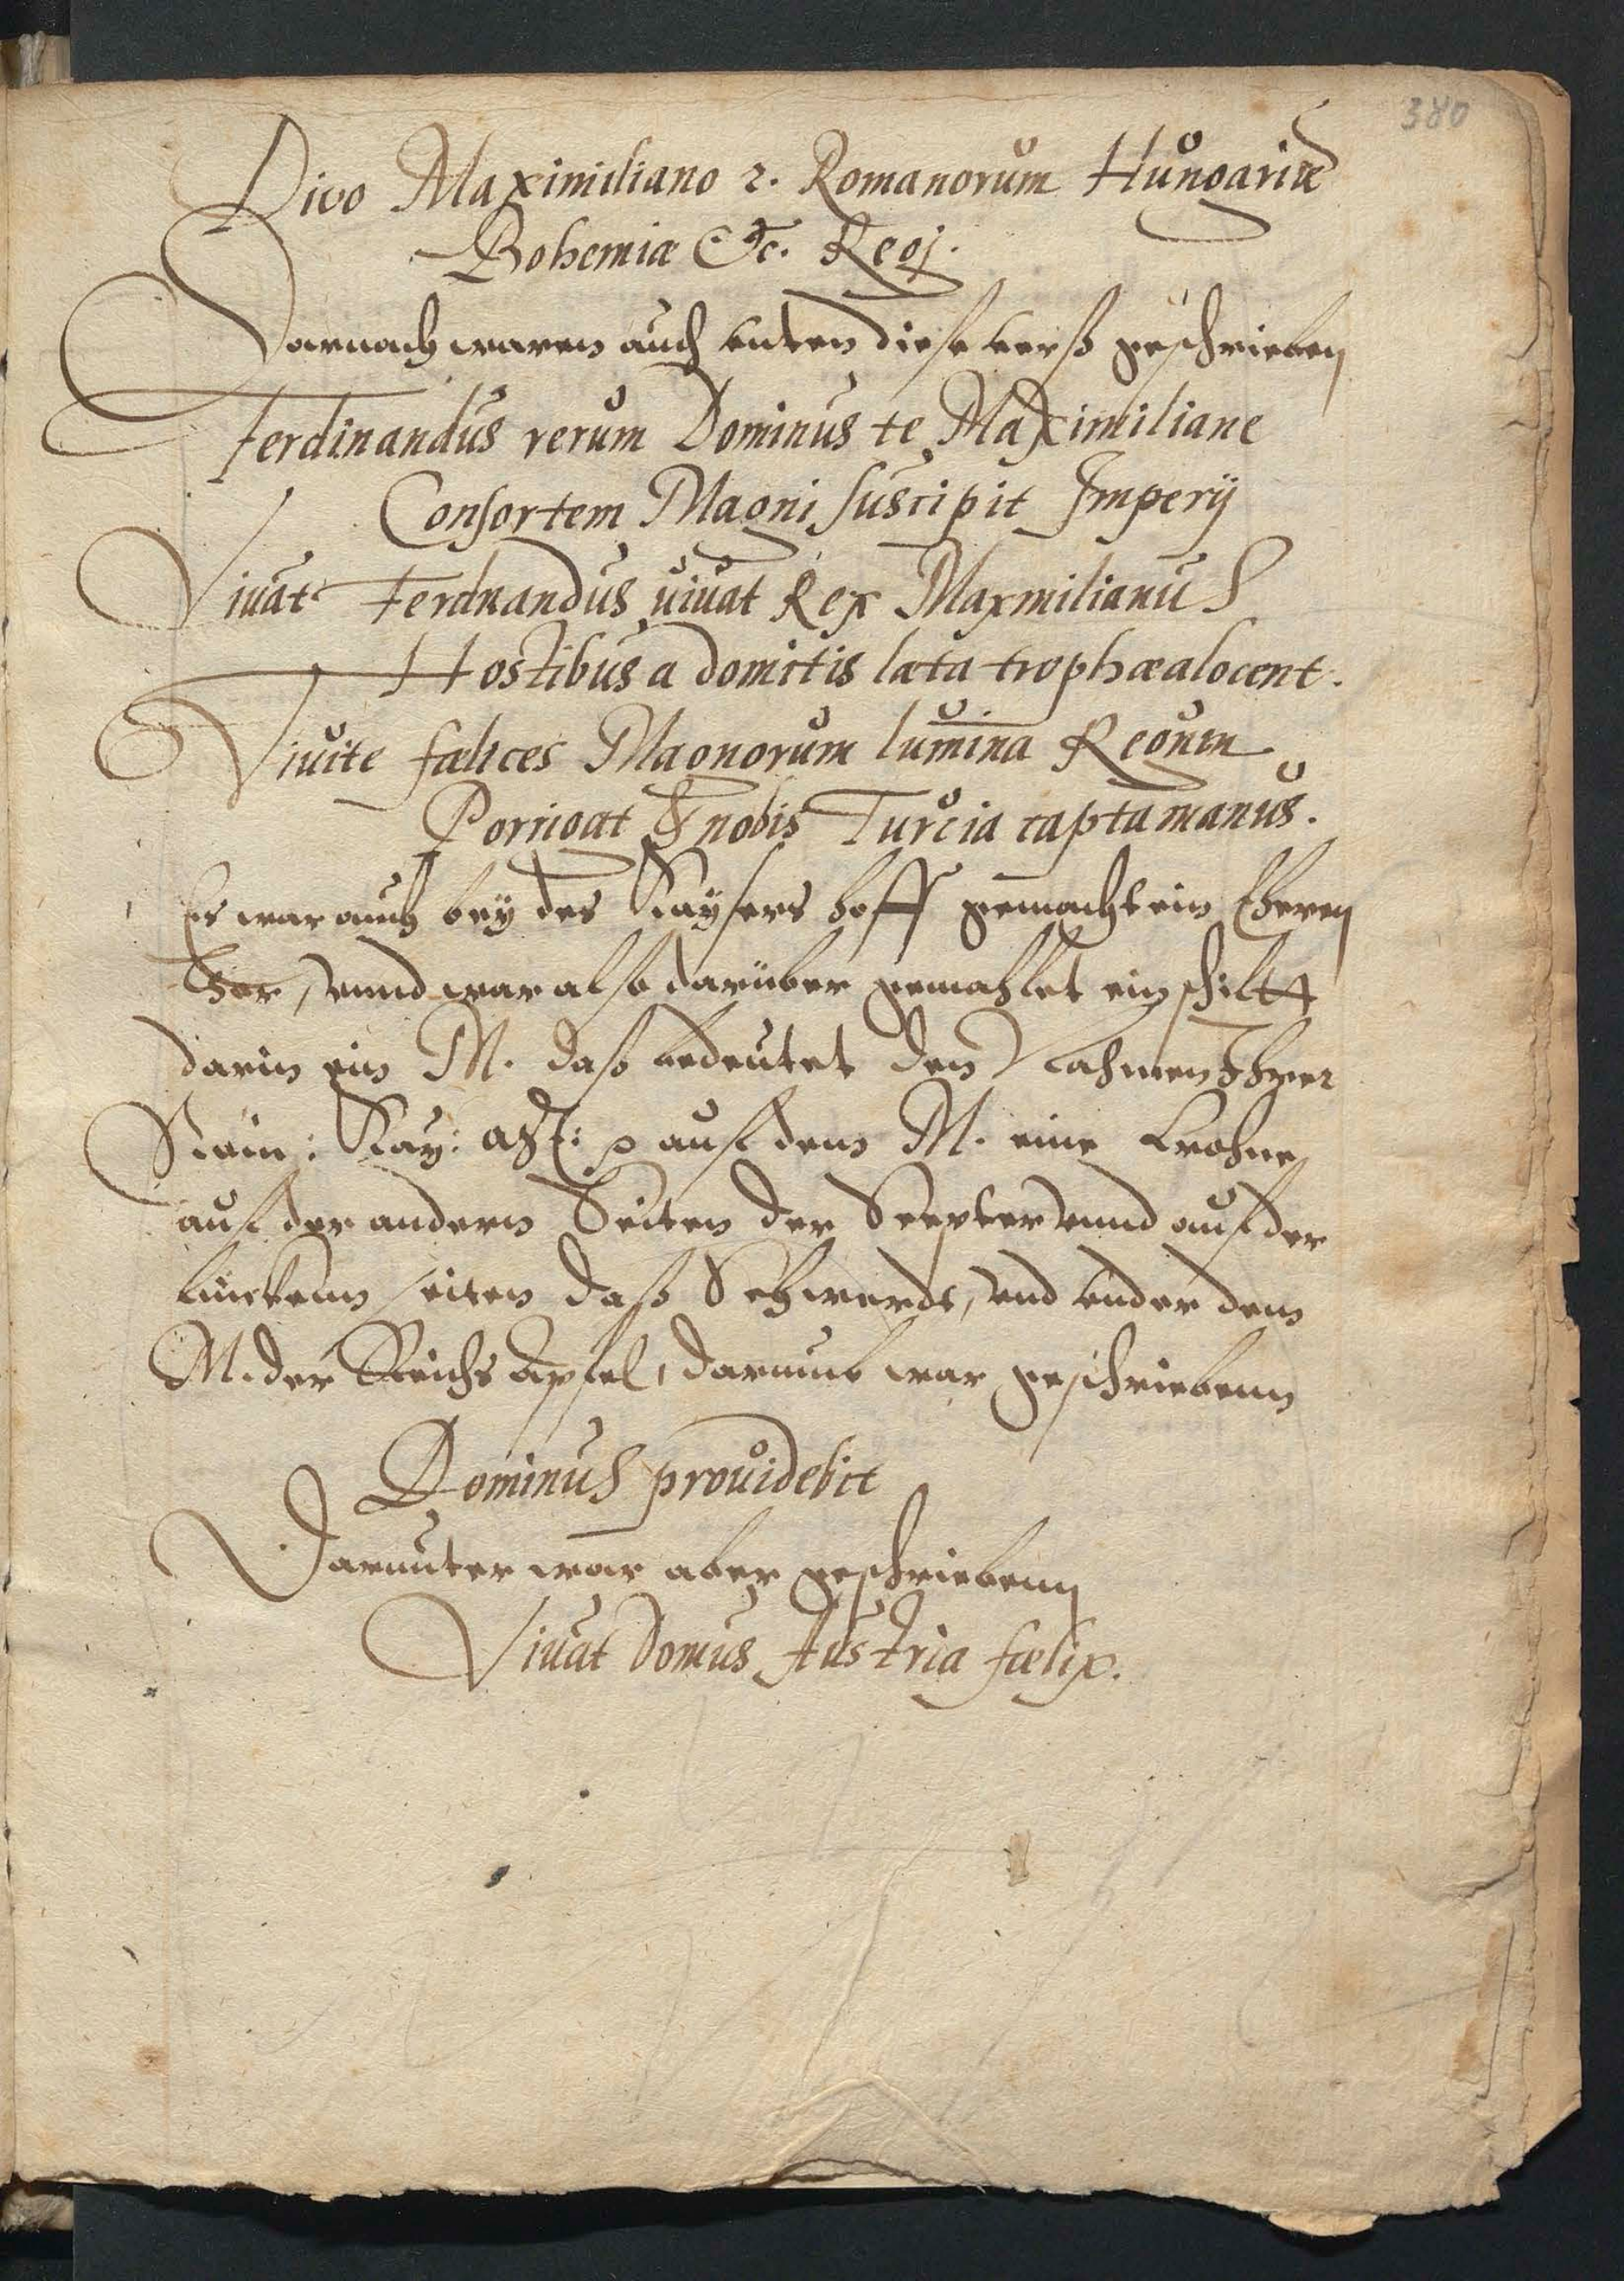 380
Divo Maximiliano 2. Romanorum Hungariæ
Bohemiæ &c. Regj.
Darnach waren auch vnten diese verß geschrieben
Ferdinandus rerum Dominus te Maximiliane
Consortem Magni suscipit Imperij
Viuat Ferdnandus uiuat Rex Maxmilianus
Hostibus a domitis læta trophæa locent.
Viuite fælices Magnorum lumina Regum
Porrigat & nobis Turcia capta manus.
Es war auch bey des Kaysers hoff gemacht ein Ehren
thor, vnnd war also darüber gemahlet ein schiltt
darin ein M. daß bedeutet den Nahmen Ihrer
Röm: Kay: Mt: auf dem M. eine Krohne
auf der andern Seiten der Scepter vnnd auf der
linckenn seiten daß Schwerdt, vnd vnder dem
M. der Reichs Apfel, darumb war geschriebenn
Dominus prouidebit
Darunter war aber geschriebenn
Viuat Domus Austria fælix.